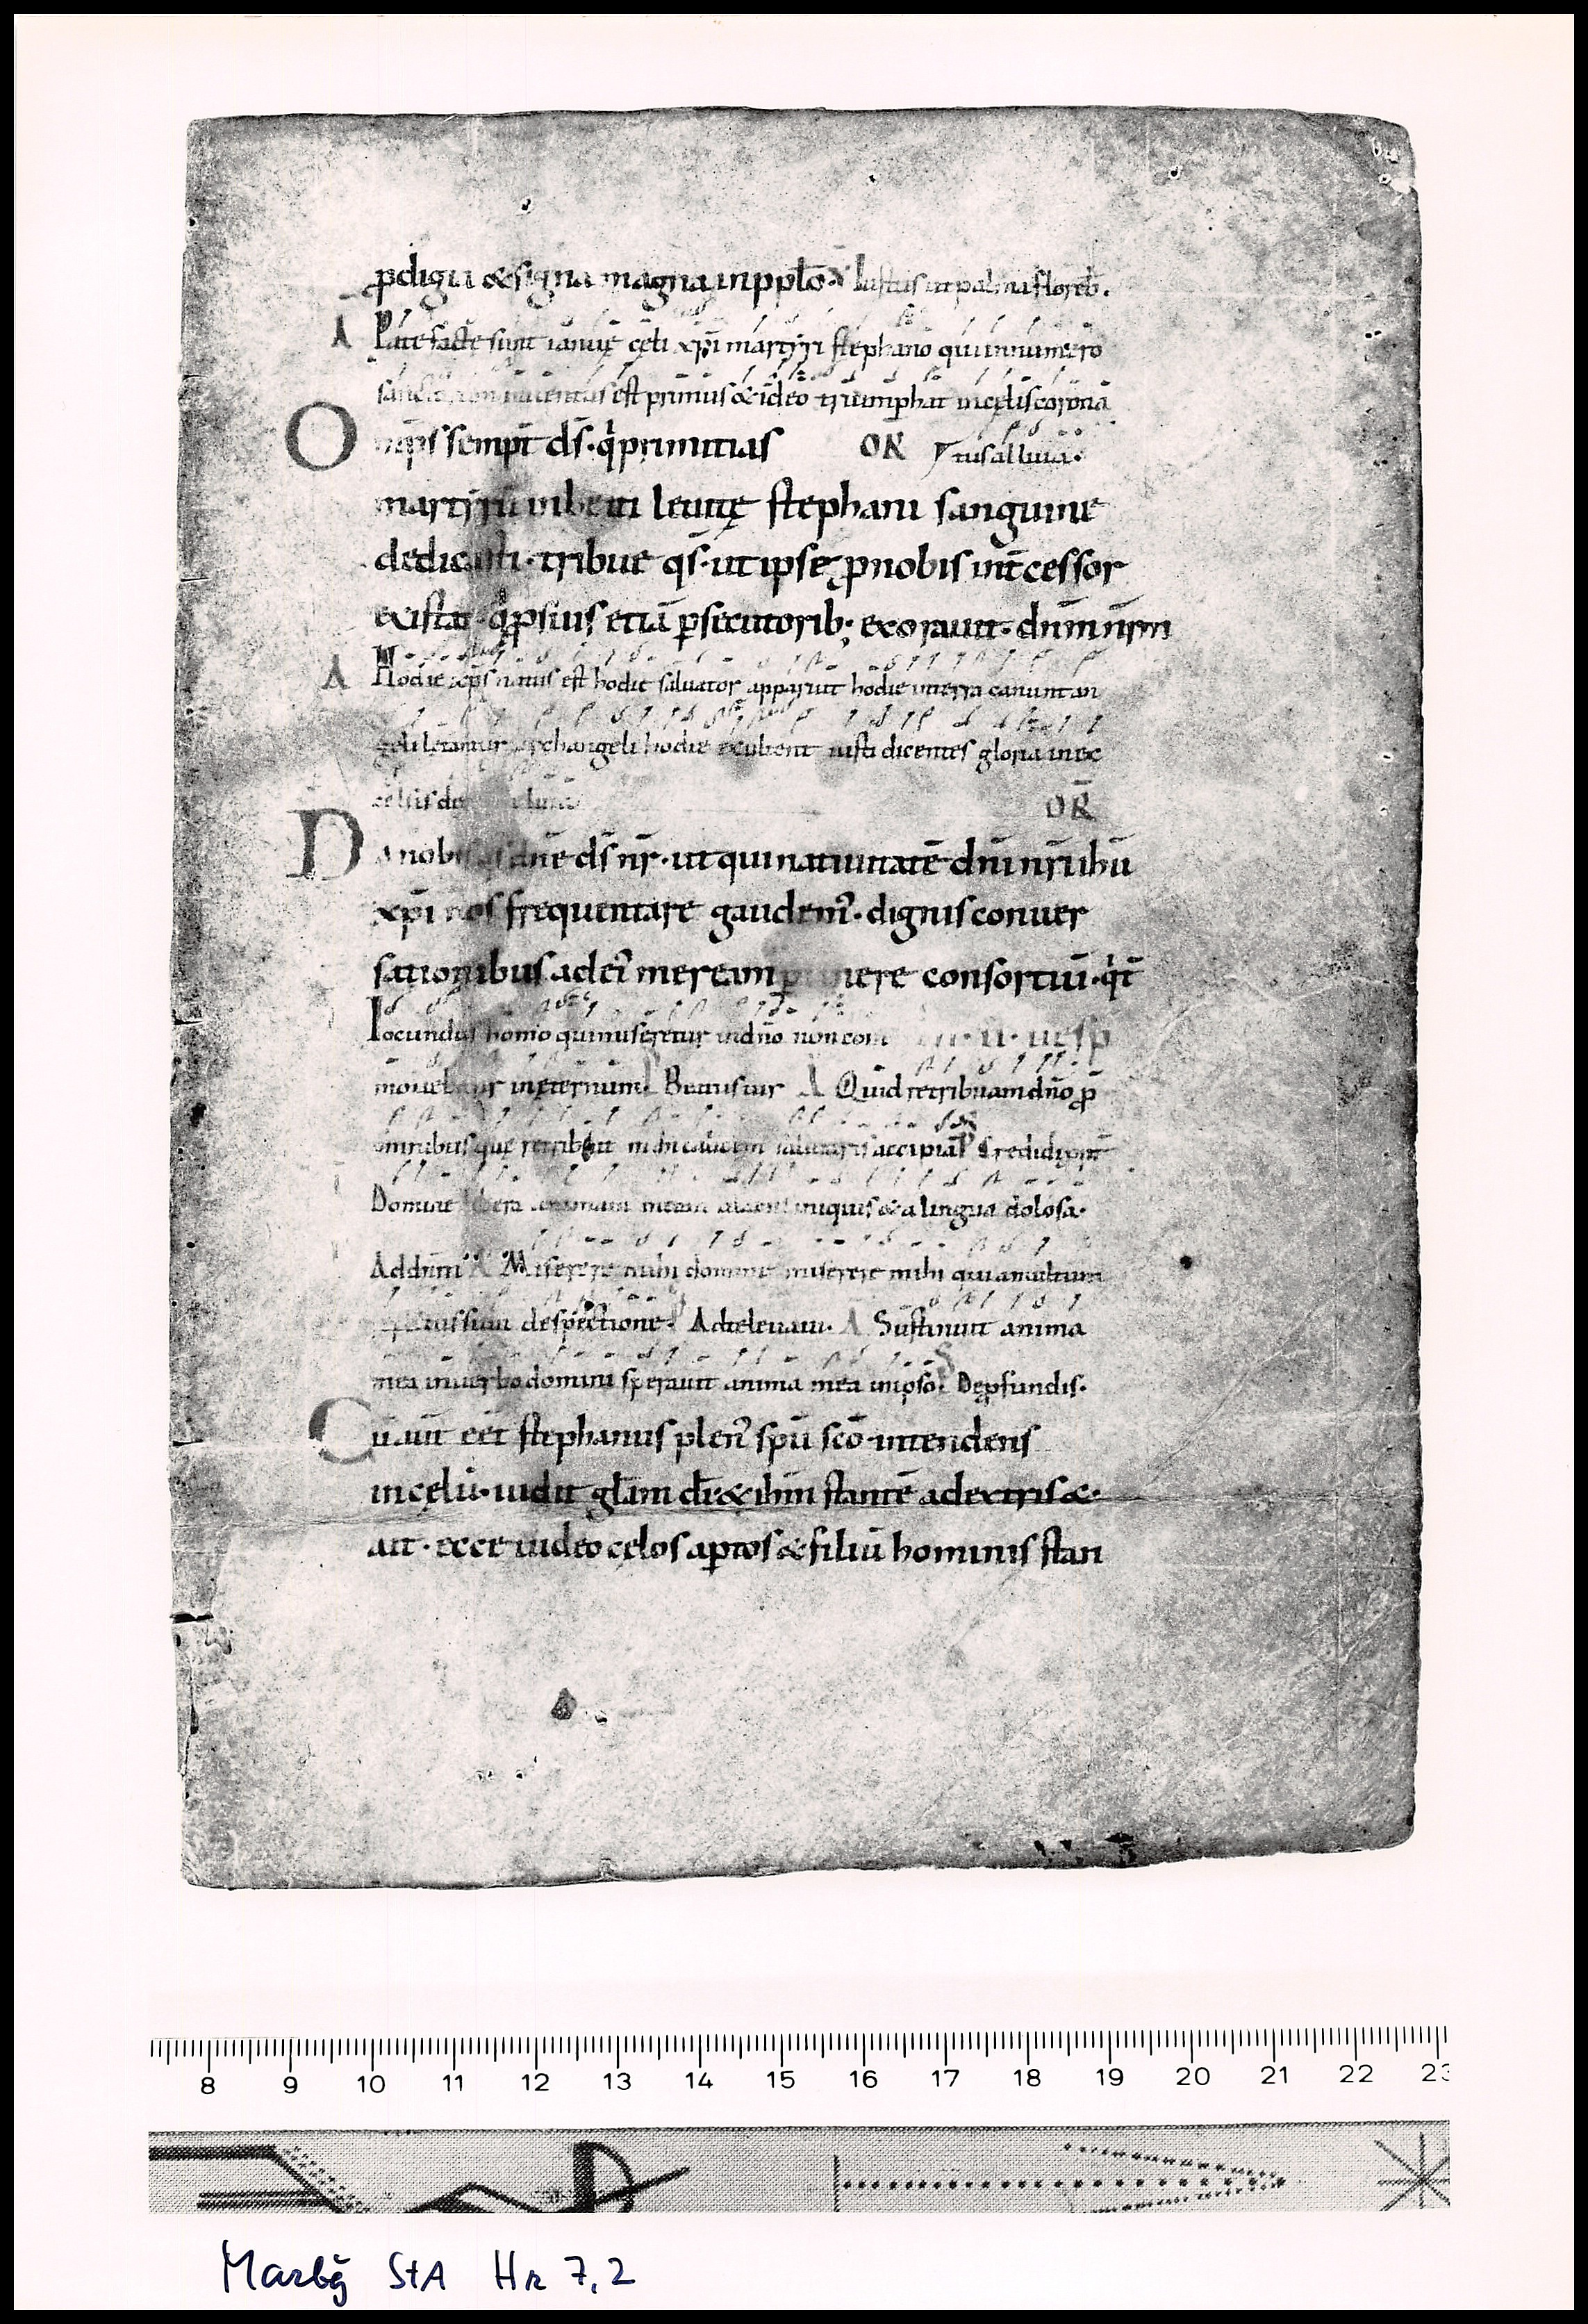 ꝓdigia & signa magna in pplo. ℣ Iustus ut palma floreb.
A Patefactę sunt ianuę cęli xp̄i martyri stephano qui in numero
inuentus est primus & ideo triumphat in cęlis coronā
O mp̄s sempt̄ ds̄. q̇ primitias OR̄ tus alluia.
martyrū in leuitę stephani sanguine
dedicasti. tribue qs̄. ut ipse ꝓ nobis int̄cessor
existat. q̇ ꝓ suis etiā ꝑsecutorib; exorauit. dn̄m nr̄m
A Hodie xp̄s natus est hodie saluator apparuit hodie in terra canunt an
geli lętantur archangeli hodie exultent iusti dicentes gloria in ex
celsis deo OR̄
D a nobis dn̄e ds̄ nr̄. ut qui natiuitatē dn̄i nr̄i ihū
xp̄i nos frequentare gaudem᾿. dignis conuer
sationibus ad ei᾿ meream ꝑ nere consortiū. q̇ t̄
Iocundus homo qui miseretur in dn̄o non com II. uesp
mouebitur in ęternum. Beatus uir A Quid retribuam dn̄o ꝓ
omnibus quę retribuit mihi calicem salutaris accipiā Credidi ꝓpt̄
Domine libera animam meam iniquis & a lingua dolosa.
Ad dn̄m A Miserere mihi domine miserere mihi quia multum
despectione. Ad te leuaui. A Sustinuit anima
mea in uerbo domini sperauit anima mea in ipso. De ꝓfundis.
C ū aut̄ eēt stephanus plen᾿ spū scō intendens
in cęlū. uidit glām dī. & ihm̄ stantē a dextris &
ait. ecce uideo cęlos aptos & filiū hominis stan
8 9 10 11 12 13 14 15 16 17 18 19 20 21 22 23
Marbg StA Hr 7,2